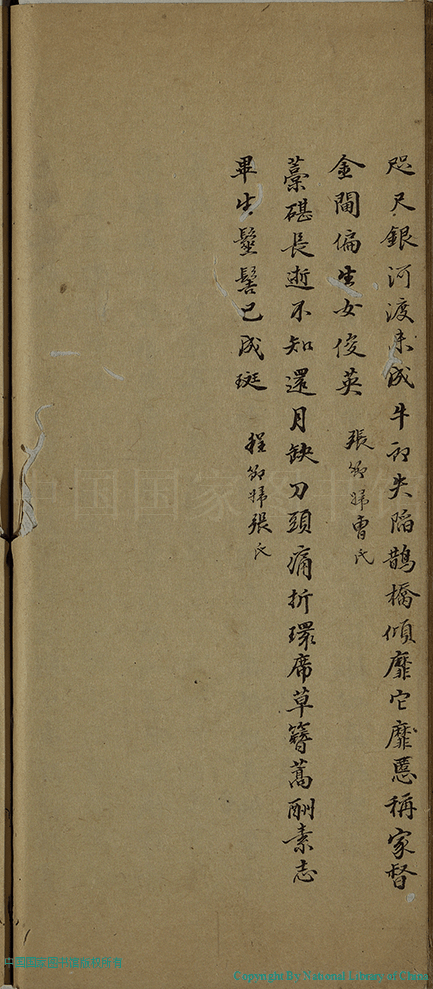 咫尺銀河渡未成牛郎失陷鵲橋傾靡它靡慝稱家督
金閨偏生女俊英 張節婦曹氏
藁碪長逝不知還月缺刀頭痛折環席草簪蒿酬素志
畢生鬟髻已成斑 程節婦張氏
Copyright By National Library of China